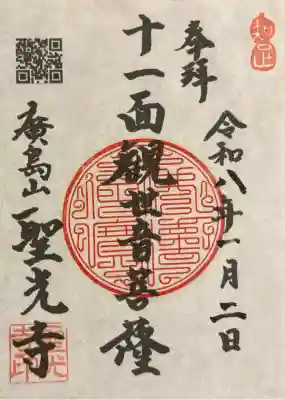 奉拝
令和八年一月二日
十一面観世音菩薩
廣島山
聖光寺